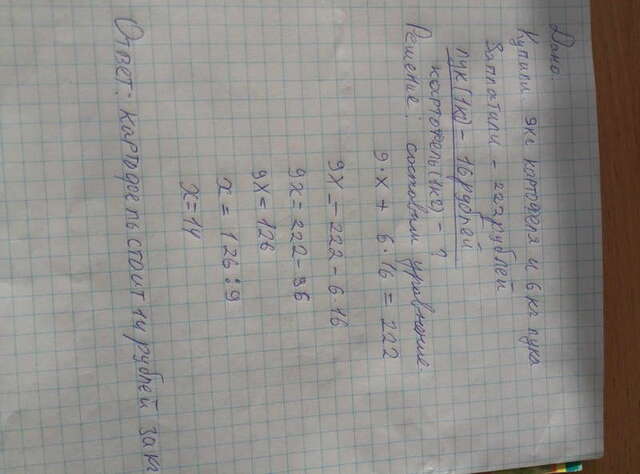 Дано:
Купили 9кг картофеля и 6 кг лука
Заплатили - 222 рублей
лук (1кг) - 16 рублей
картофель (1кг) - ?
Решение: составим уравнение.
9·x + 6·16 = 222
9x = 222 - 6·16
9x = 222 - 96
9x = 126
x = 126 : 9
x = 14
Ответ: картофель стоит 14 рублей за кг